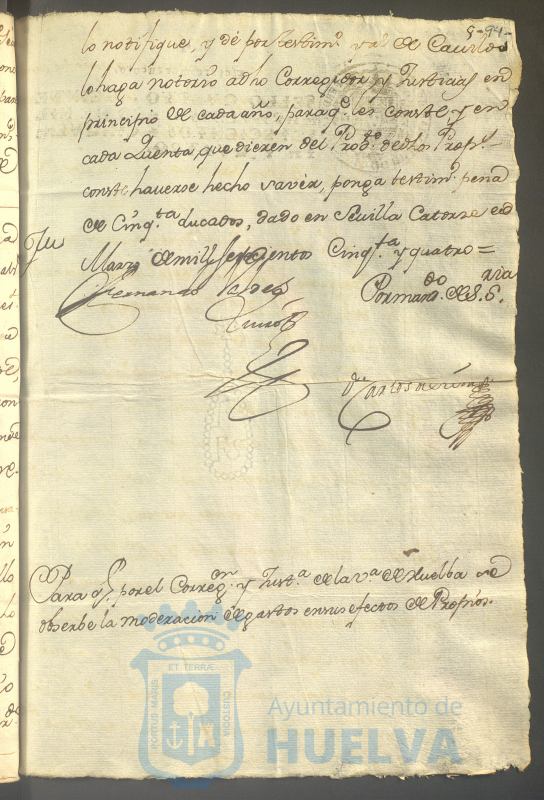 lo notifique, y dé por testim.º
lo haga notorio a dho Corregidor y Justicias en
principio de cada año, para q.e les conste, y en
cada quenta, que dieren del Prod.to de dhos Prop.s
conste haverse hecho saver, ponga testim.º pena
de Cinq.ta ducados, dado en Sevilla Catorze de
Marzo de mill Setecientos Cinq.ta y quatro =
Fernando Valdes
Quirós
Por mand.do de S.S.ria
Carlos de
Para q.e por el Correg.or y Just.a de la v.a de Huelba se
obserbe la moderacion de gastos en sus efectos de Propios.
PORTUS MARIS
ET TERRÆ
CUSTODIA
Ayuntamiento de
HUELVA